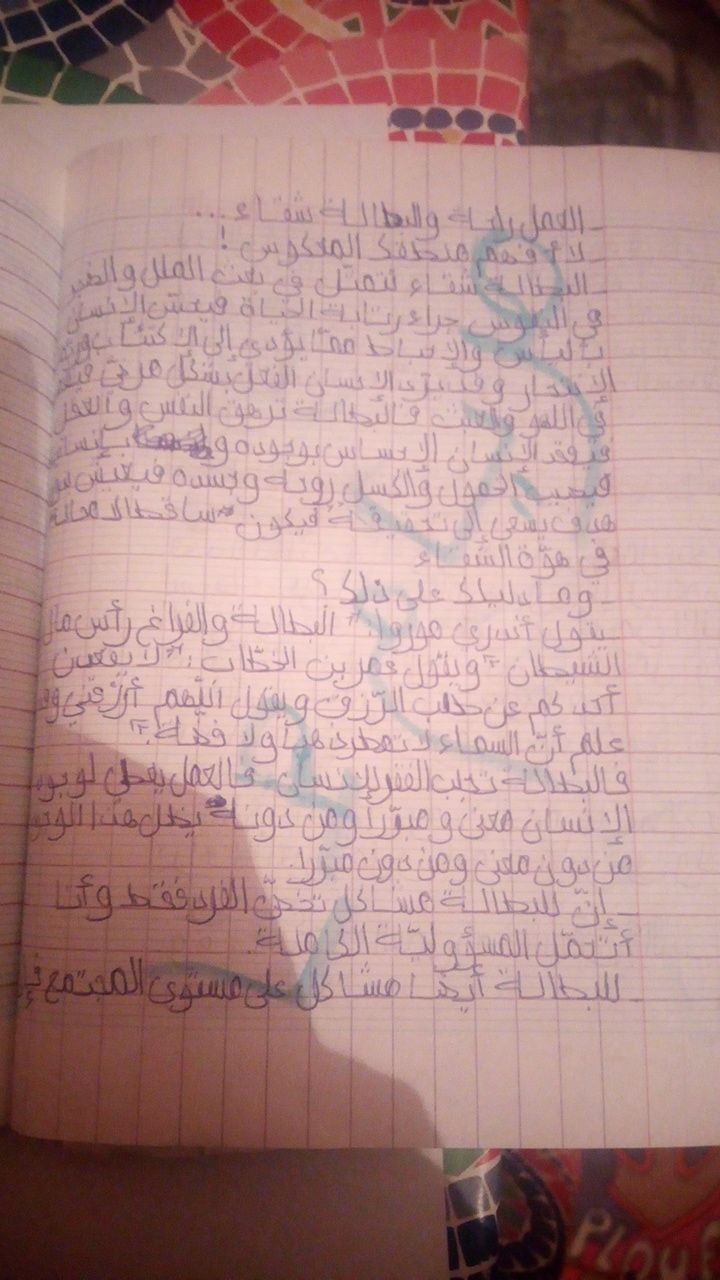 _ العمل راحة والبطالة شقاء ...
_ لا أفهم منطقك المعكوس !
_ البطالة شقاء تتمثل في بعث الملل و
في النفوس جراء رتابة الحياة فيعيش الإنسان
باليأس والإحباط ممّا يؤدي إلى الاكتئاب و
الإنتحار وقد يبرّر الإنسان
في اللهو والعبث فالبطالة ترهق النفس والعقل
فيفقد الإنسان الإحساس بوجوده و
فيصيب الخمول والكسل روحه وجسده فيعيش
هدف يسعى إلى تحقيقه فيكون ساقطا لا محالة
في هوّة الشّقاء
_ وما دليلك على ذلك ؟
_ يقول أندري موروا: " البطالة والفراغ رأس مال
الشيطان " ويقول عمر بن الخطّاب : " لا يقعدن
أحدكم عن طلب الرّزق ويقول اللّهم أرزقني وقد
علم أنّ السماء لا تمطر ذهبا ولا فضّة ."
فالبطالة تجلب الفقر للإنسان فالعمل يعطي لوجود
الإنسان معنى ومبرّرا ومن دونه يظل هذا الوجود
من دون معنى ومن دون مبرّر.
_ إنّ للبطالة مشاكل تخصّ الفرد فقط وأنا
أتحمّل المسؤوليّة الكاملة.
_ للبطالة أيضا مشاكل على مستوى المجتمع